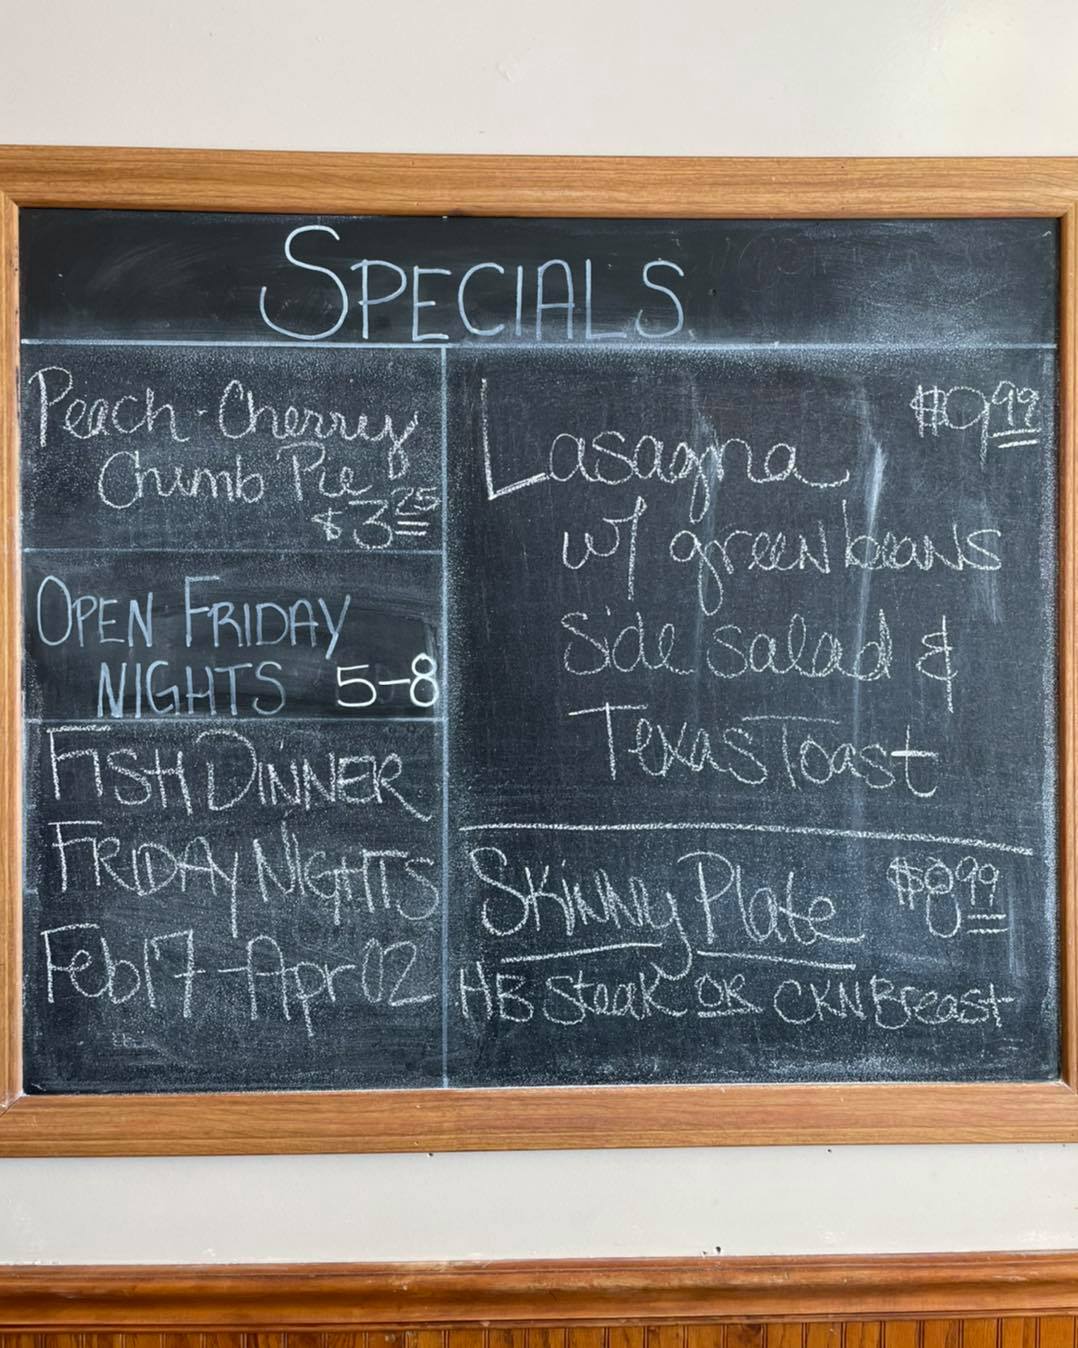 SPECIALS
Peach-Cherry
Crumb Pie
$3.25
OPEN FRIDAY
NIGHTS 5-8
FISH DINNER
FRIDAY NIGHTS
Feb 17 - Apr 02
$9.99
Lasagna
w/ green beans
Side salad &
Texas Toast
Skinny Plate $8.99
HB Steak OR CKN Breast